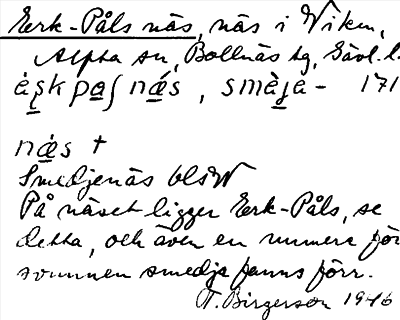 Eerk-Påls näs, näs i Viken,
Alfta sn, Bollnäs tg, Gävl. l.
näs, 171
näs +
Smedjenäs
På näset ligger Eerk-Påls, se
detta, och även en numera för
svunnen smedja fanns förr.
T. Birgerson 1946